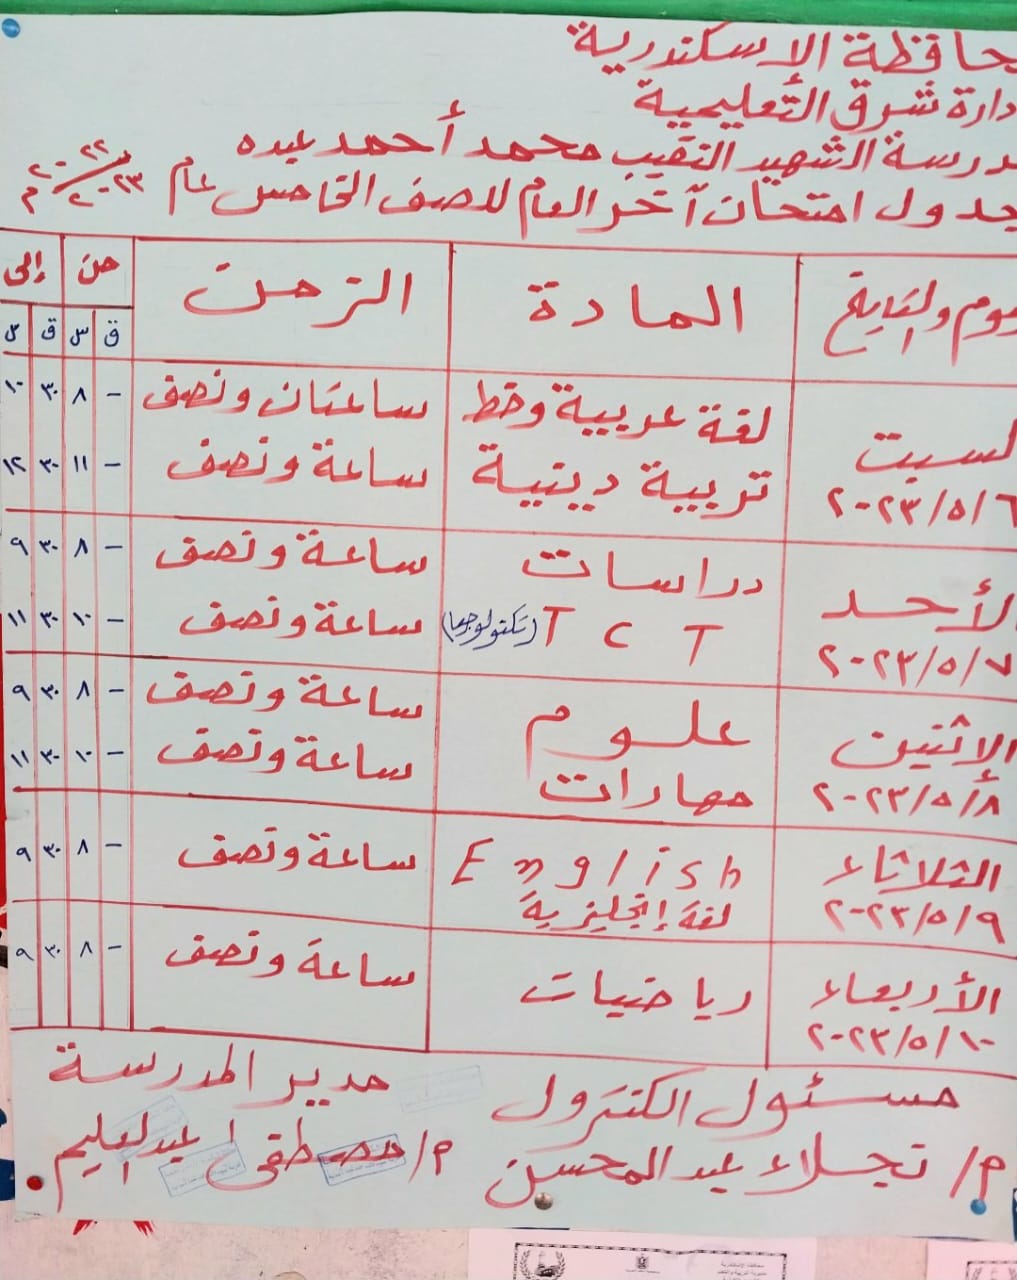 محافظة الإسكندرية
إدارة شرق التعليمية
مدرسة الشهيد النقيب محمد أحمد عبده
جدول امتحان آخر العام للصف الخامس عام ٢٠٢٢/٢٠٢٣م
اليوم والتاريخ المادة الزمن من إلى
ق س ق س
السبت ٢٠٢٣/٥/٦
لغة عربية وخط ساعتان ونصف - ٨ ٣٠ ١٠
تربية دينية ساعة ونصف - ١١ ٣٠ ١٢
الأحد ٢٠٢٣/٥/٧
دراسات ساعة ونصف - ٨ ٣٠ ٩
T C T (تكنولوجيا) ساعة ونصف - ١٠ ٣٠ ١١
الإثنين ٢٠٢٣/٥/٨
علوم ساعة ونصف - ٨ ٣٠ ٩
مهارات ساعة ونصف - ١٠ ٣٠ ١١
الثلاثاء ٢٠٢٣/٥/٩
English ساعة ونصف - ٨ ٣٠ ٩
لغة إنجليزية
الأربعاء ٢٠٢٣/٥/١٠
رياضيات ساعة ونصف - ٨ ٣٠ ٩
مسئول الكنترول مدير المدرسة
م/ نجلاء عبد المحسن م/ مصطفى عبد العليم